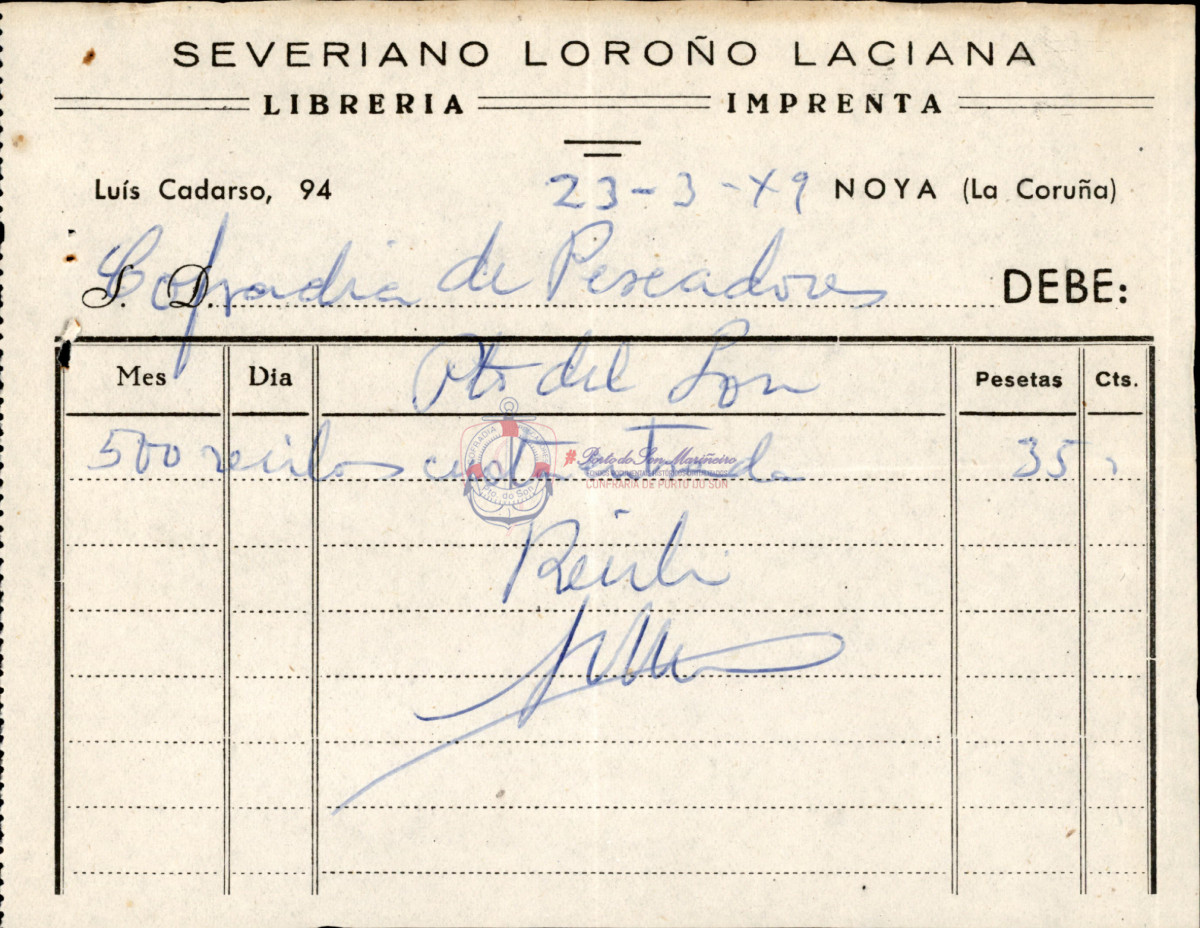 SEVERIANO LOROÑO LACIANA
LIBRERIA IMPRENTA
Luís Cadarso, 94 23-3-49 NOYA (La Coruña)
S. D. Cofradia de Pescadores DEBE:
Pto del Son
Mes Dia Pesetas Cts.
500 recibos cuota entrada 35
COFRADIA
Pto. do Son
#Porto do Son Mariñeiro
CONFRARIA DE PORTO DO SON
Recibi